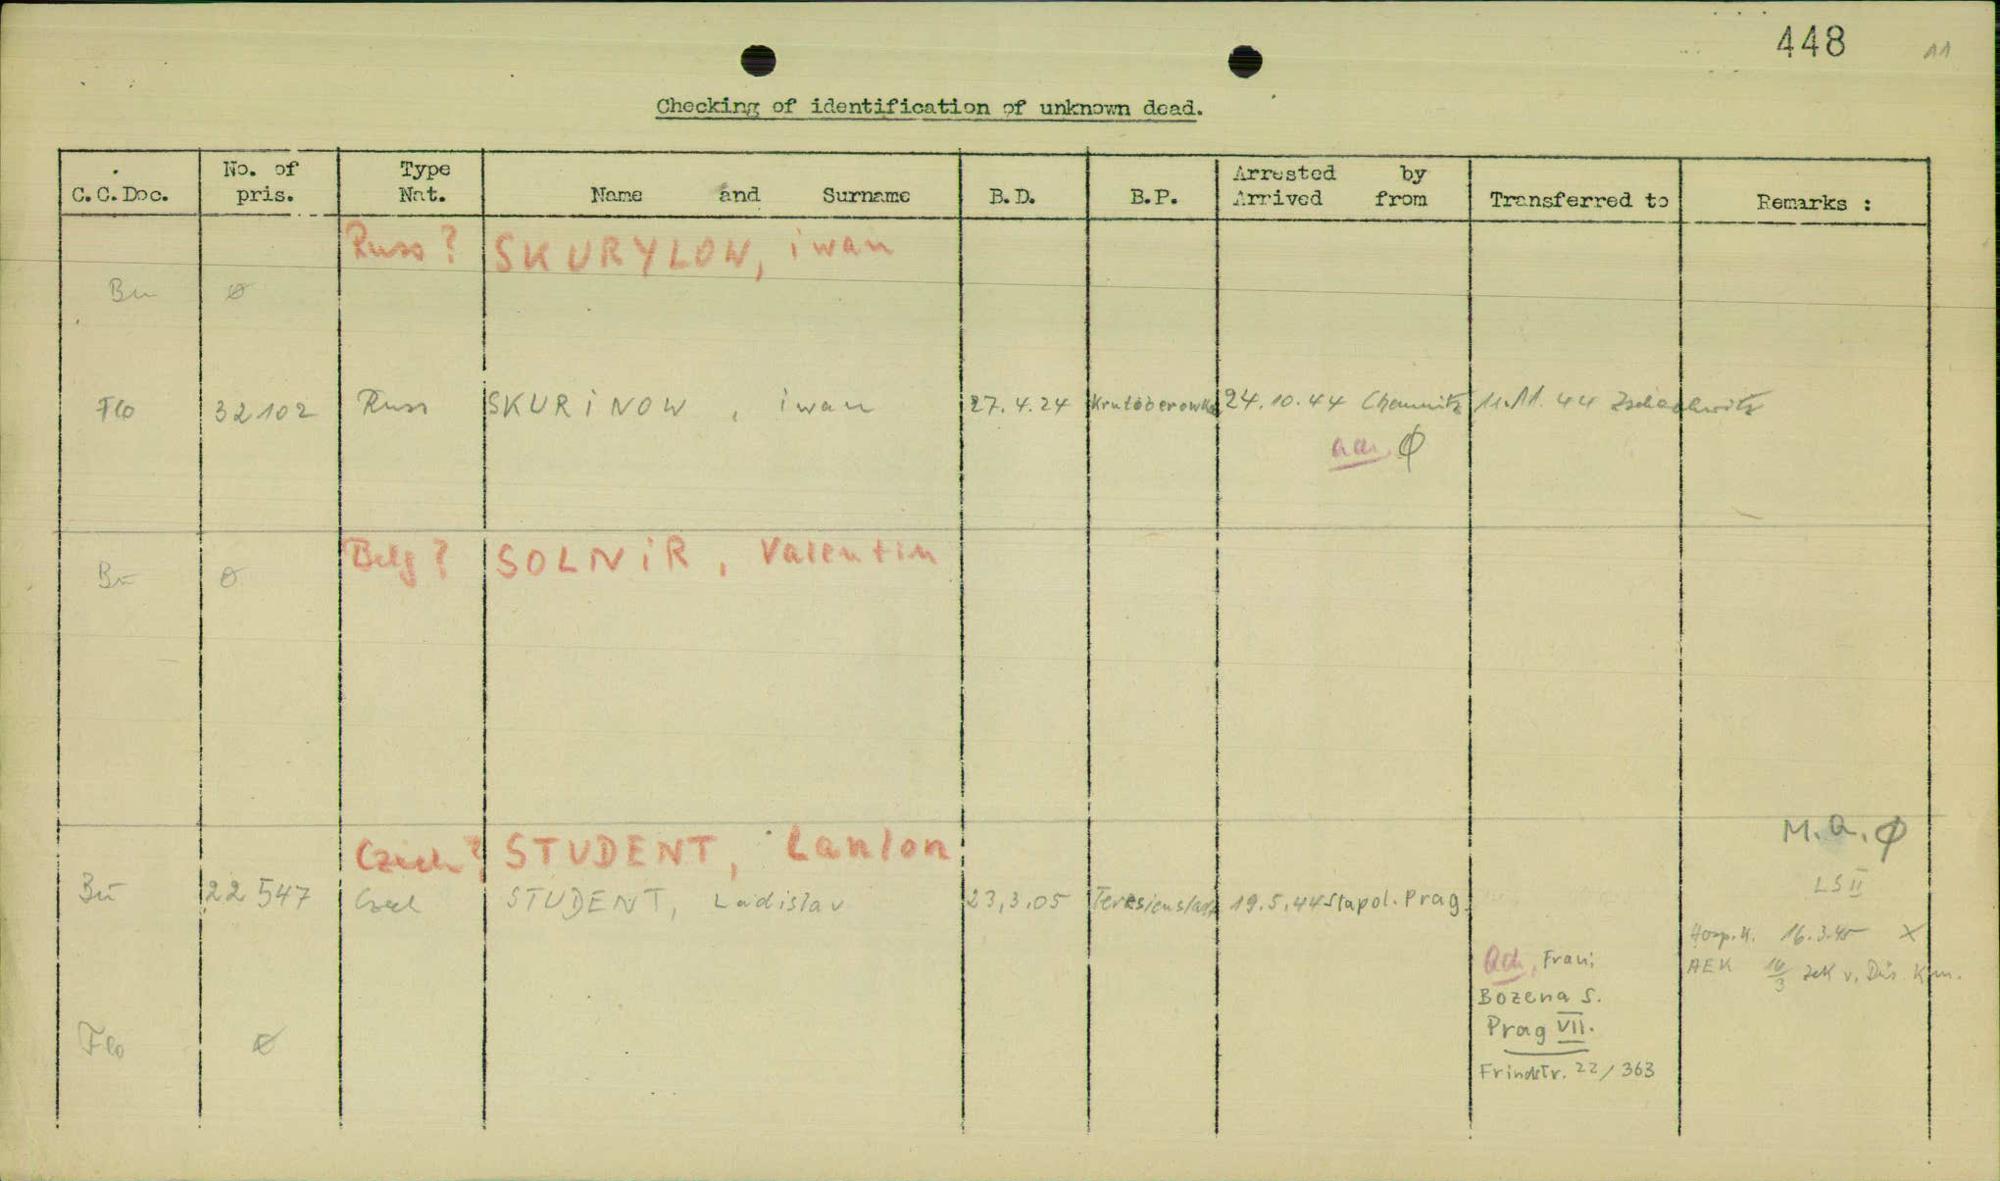 448 11
Checking of identification of unknown dead.
C.C.Doc. No. of pris. Type Nat. Name and Surname B.D. B.P. Arrested by Arrived from Transferred to Remarks :
Russ? SKURYLOW, iwan
Bu ø
Flo 32102 Russ SKURiNOW, iwan 27.4.24 24.10.44 Chemnitz 11.11.44 Zschachwitz
Ø
Belg? SOLNiR, Valentin
Bu ø
Czech? STUDENT, Lanlon
M.a. Ø
LS II
Bu 22547 Czech STUDENT, Ladislav 23.3.05 Teresienstadt 19.5.44 Stapol. Prag.
Hosp.K. 16.3.45 X
Adr, Frau;
AEK 16/3
Bozena S.
Prag VII.
Flo ø
Frindstr. 22/363